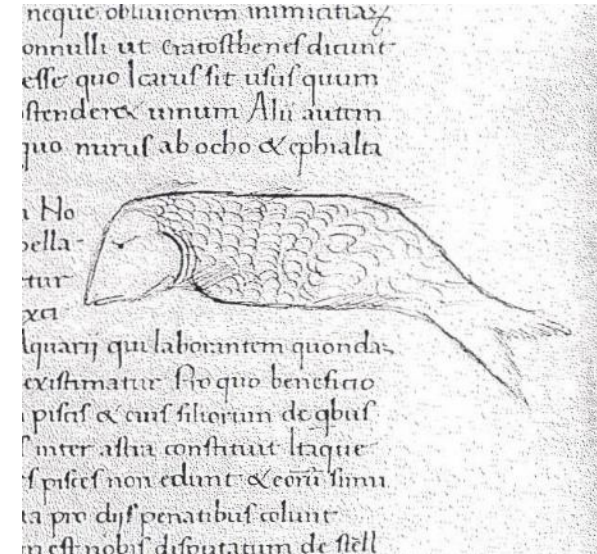 neque obliuionem inimicitias
onnulli ut eratosthenes dicunt
esse quo Icarus sit usus quum
stender& uinum Alii autem
quo nurus ab ocho & ephialta
No
ella-
tur
xci
Aquarij qui laborantem quonda
existimatur Pro quo beneficio
piscis & eius filiorum de qbus
inter astra constituit Itaque
pisces non edunt & eorū simu
pro dijs penatibus colunt
est nobis disputatum de stell